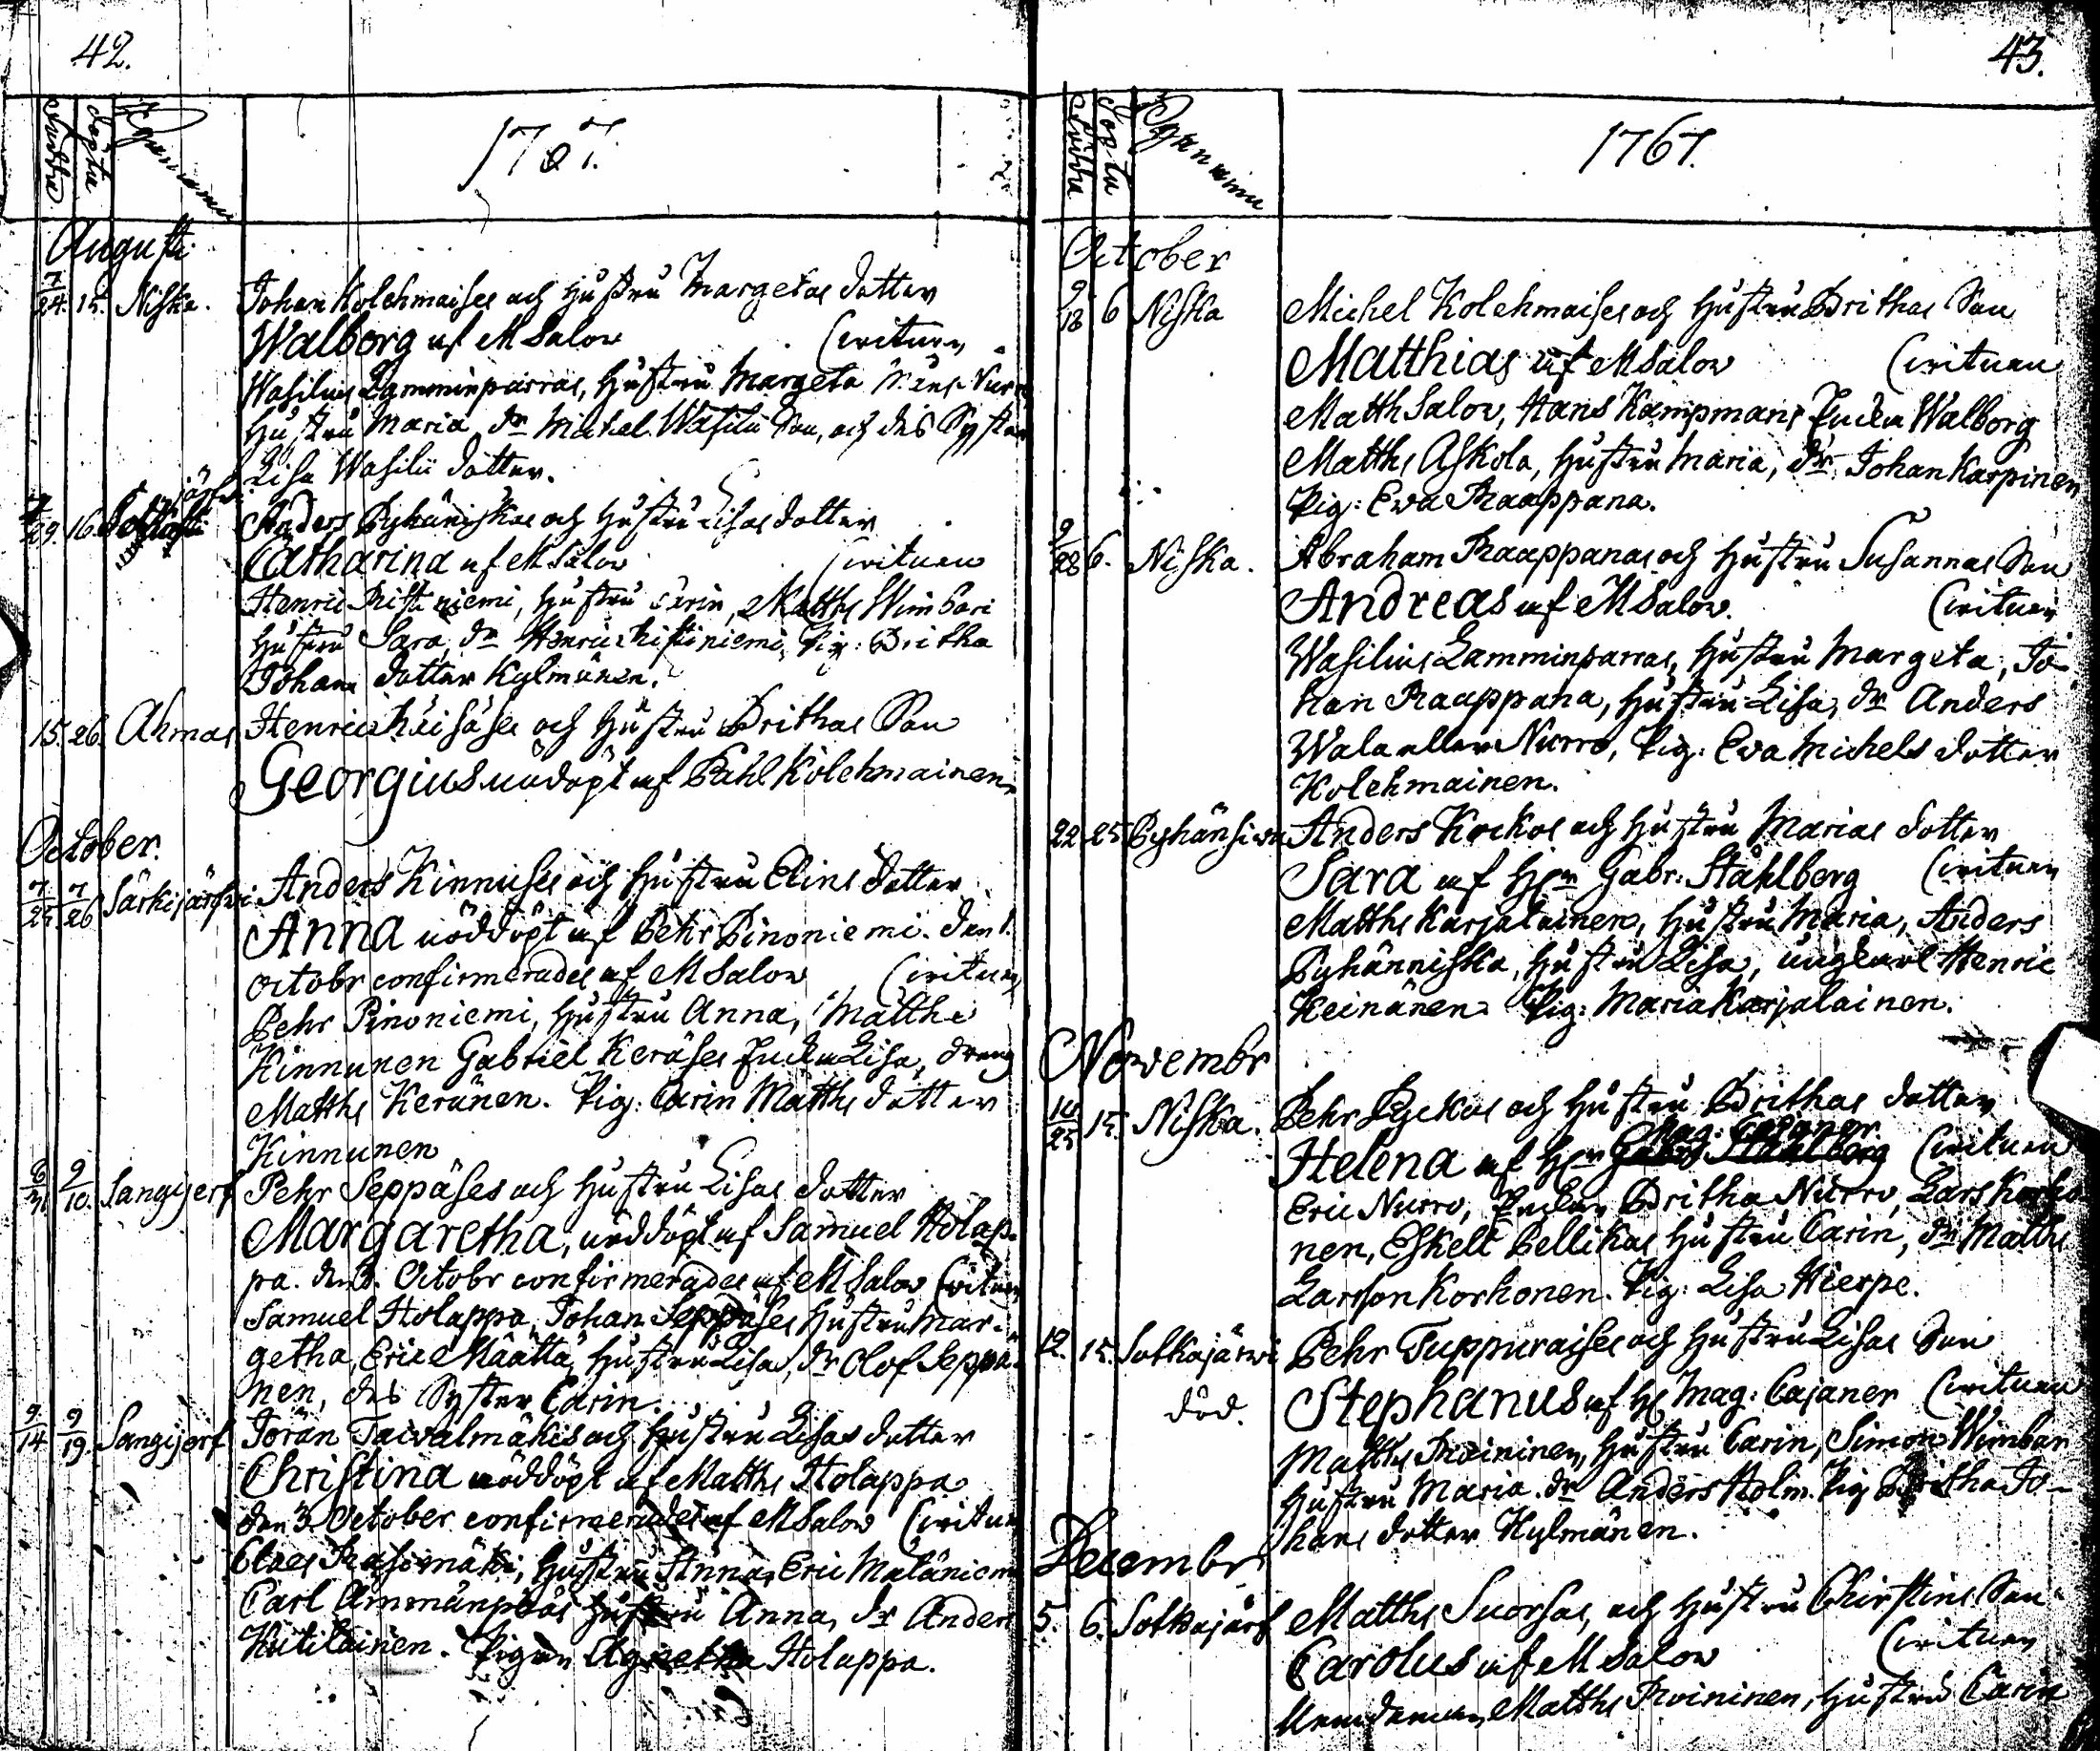 42.
Födde
Döpte
Byanamn
1767.
Augusti
7/24. 15. Niska. Johan Kolehmaises och Hustru Margetas dotter
Walborg af M Salov Cirituen
Wasilius Lamminparras, Hustru Margeta
Hustru Maria dr Michel Wasilii Son, och des Syster
Lisa Wasilii dotter.
29. 16. Anders Pyhäniskas och Hustru Lisas dotter
Catharina af M Salov Cirituen
Henric Ristiniemi, Hustru Carin, Matths Wimbari
Hustru Sara, dr Henric Ristiniemi, Pig: Britha
Johans dotter Kylmänen.
15. 26. Ahmas Henric Huisases och Hustru Brithas Son
Georgius nöddöpt af Påhl Kolehmainen.
October.
7/25. 7/26 Särkijärfvi Anders Kinnuses och Hustru Elins dotter
Anna nöddöpt af Pehr Pinoniemi. den 1.
octobr confirmerades af M Salov Cirituen
Pehr Pinoniemi, Hustru Anna, Matths
Kinnunen Gabriel Keräses Enka Lisa, dreng
Matths Keränen. Pig: Carin Matths dotter
Kinnunen
6/31 9/10. Sangijerf Pehr Seppäses och Hustru Lisas dotter
Margaretha, nöddöpt af Samuel Holap-
pa. den 3. Octobr confirmerades af M Salov Cirituen
Samuel Holappa, Johan Seppäses Hustru Mar-
getha, Eric Määttä, Hustru Lisa, dr Olof Seppä-
nen, des Syster Carin.
9/14 9/19. Sangijerf Jöran Taivalmäkis och Hustru Lisas dotter
Christina nöddöpt af Matths Holappa
den 3. October confirmerades af M Salov Cirituen
Claes Rasomäki, Hustru Anna, Eric Mälaniemi
Carl Ämmänpääs Hustru Anna, dr Anders
Kutilainen. Pigan Agnetha Holappa.
43.
Födda
Döpta
Byanamn
1767.
October
9/18 6 Niska Michel Kolehmaises och Hustru Brithas Son
Matthias af M Salov Cirituen
Matth Salov, Hans Kampmans Enka Walborg
Matths Askola, Hustru Maria, dr Johan Karpinen
Pig: Eva Raappana.
9/28 6. Niska. Abraham Raappanas och Hustru Susannas Son
Andreas af M Salov. Cirituen
Wasilius Lamminparras, Hustru Margeta, Jo-
han Raappana, Hustru Lisa, dr Anders
Wala eller Nurro, Pig: Eva Michels dotter
Kolehmainen.
22 25 Anders Kockos och Hustru Marias dotter
Sara af Hr Gabr: Ståhlberg Cirituen
Matths Karjalainen, Hustru Maria, Anders
Pyhänniska, Hustru Lisa, ungkarl Henric
Heinänen. Pig: Maria Karjalainen.
Novembr
10/25 15. Niska. Pehr Lyckos och Hustru Brithas dotter
Mag: Cajaner
Helena af Hr Gabr Ståhlberg Cirituen
Eric Nurro, Enkan Britha Nurro, Lars Korho-
nen, Eskell Pellikas Hustru Carin, dr Matths
Larsson Korhonen. Pig: Lisa Hierpe.
12. 15. Sotkajärvi Pehr Tuppuraises och Hustru Lisas Son
död. Stephanus af H Mag: Cajaner Cirituen
Matths Roininen, Hustru Carin, Simon Wimbari
Hustru Maria. dr Anders Holm. Pig Britha Jo-
hans dotter Kylmänen.
Decembr
5. 6. Sotkajärf Matths Suorsas, och Hustru Chirstins Son
Carolus af M Salov Cirituen
Nemdeman Matths Roininen, Hustru Carin